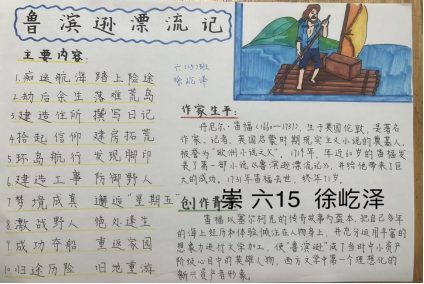 鲁滨逊漂流记
主要内容:
1.痴迷航海 踏上险途
2.劫后余生 落难荒岛
3.建造住所 撰写日记
4.拾起信仰 建房拓荒
5.环岛航行 发现脚印
6.建造工事 防御野人
7.梦境成真 邂逅"星期五"
8.激战野人 绝处逢生
9.成功夺船 重返家园
10.归途历险 旧地重游
六(15)班
徐屹泽
作家生平:
丹尼尔·笛福(1660—1731),生于英国伦敦,是著名
作家、记者,英国启蒙时期现实主义小说的奠基人,
被誉为"欧洲小说之父"。1719年,年近60岁的笛福发
表了第一部小说《鲁滨逊漂流记》,并给他带来了巨
大的成功。1731年笛福去世,终年71岁。
创作背
崇 六15 徐屹泽
笛福以塞尔柯克的传奇故事为蓝本,把自己多年
的海上经历和体验倾注在人物身上,并充分运用丰富的
想象力进行文学加工,使"鲁滨逊"成了当时中小资产
阶级心目中的英雄人物,西方文学中第一个理想化的
新兴资产者形象。